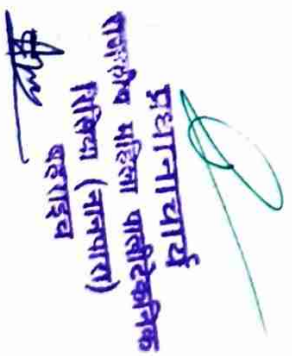 प्रधानाचार्य
राजकीय महिला पालीटेकनिक
रिसिया (नानपारा)
बहराइच